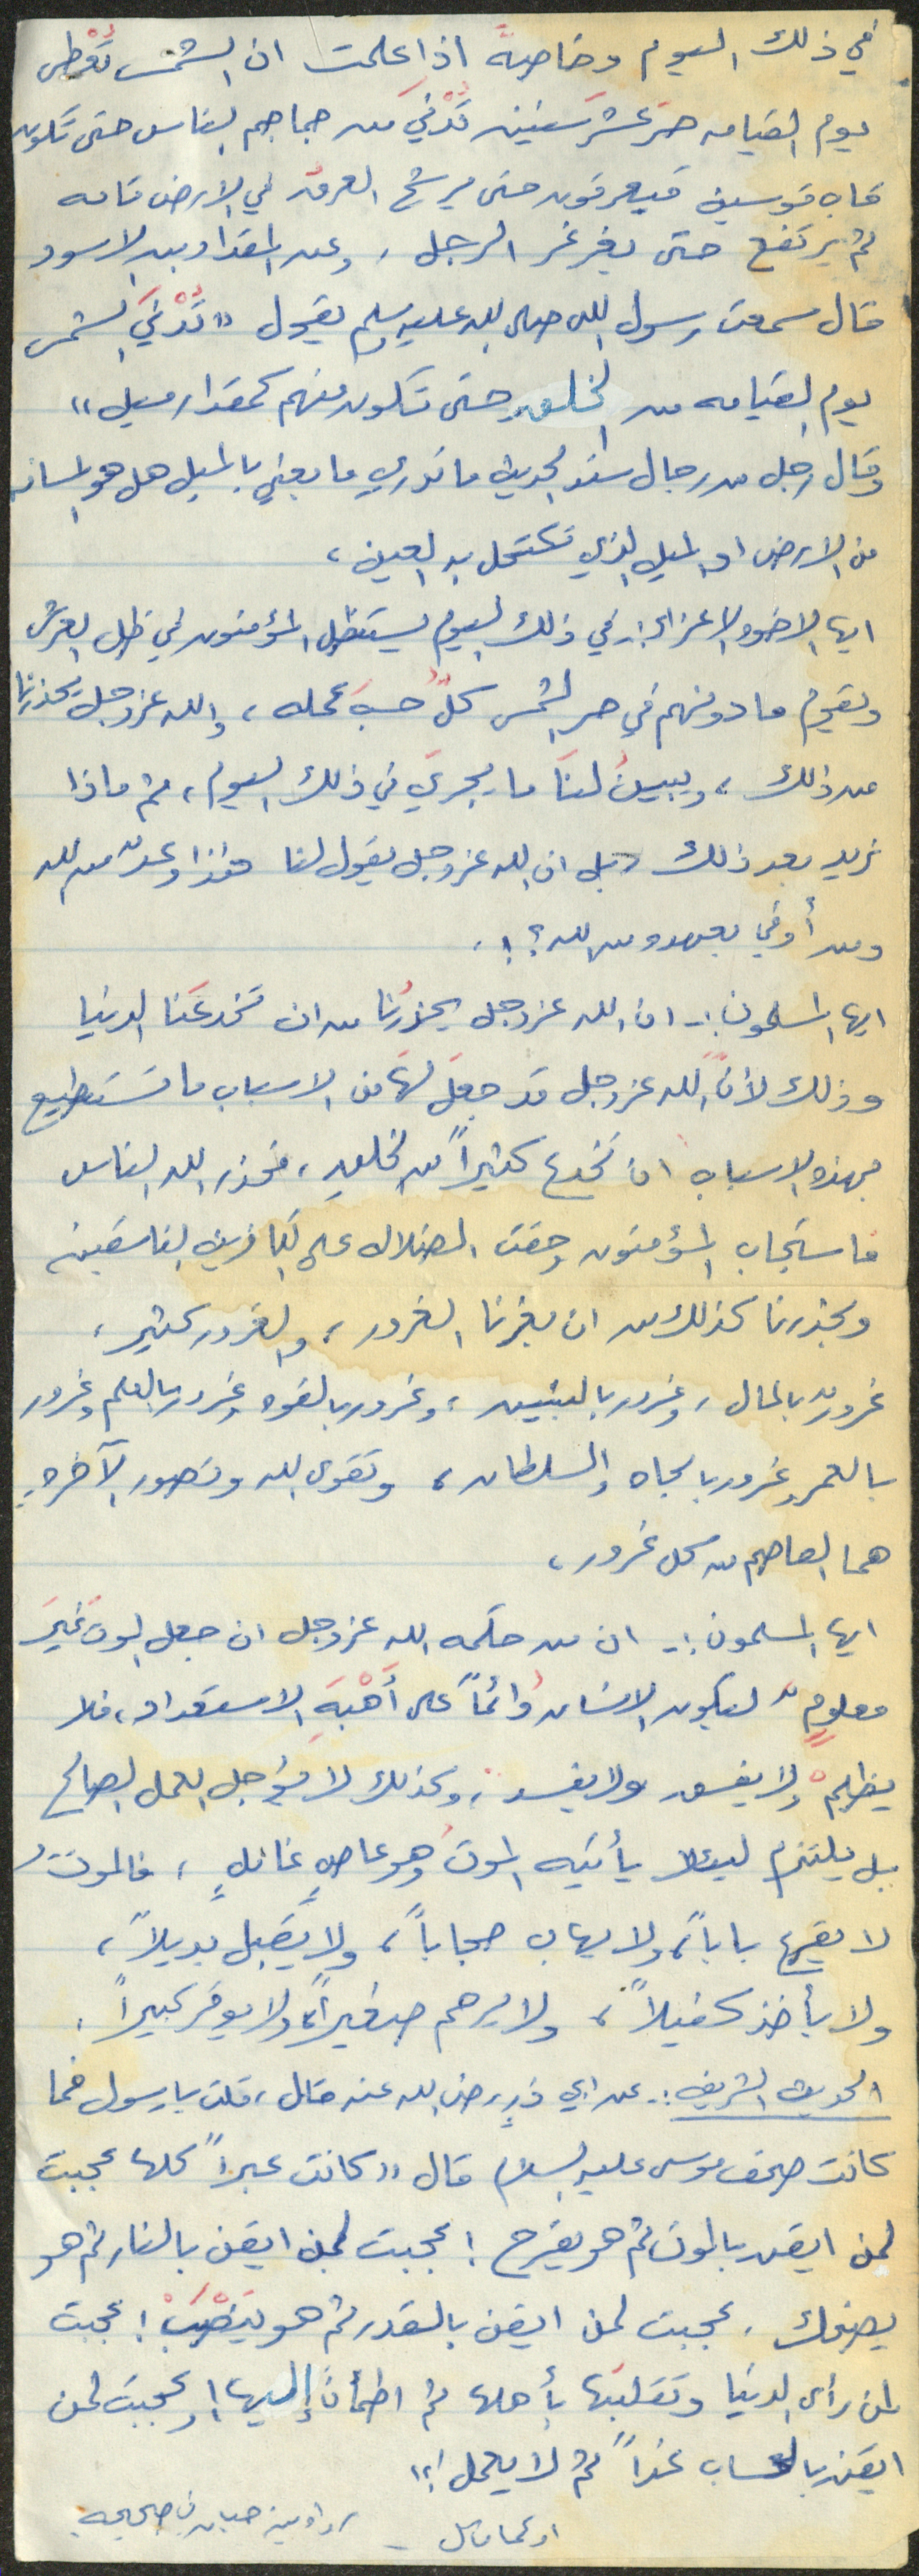 في ذلك اليوم وخاصةً اذا علمت ان الشمس تُعْطى
يوم القيامه حرَّ عشرَ سنين تُدْنَى من جماجم الناس حتى تكون
قاب قوسين فيعرقون حتى يرشح العرقُ في الارض قامه
ثم يرتفع حتى يغرغر الرجل ، وعن المقداد بن الاسود
قال سمعت رسول الله صلى الله عليه وسلم يقول « تُدْنَى الشمس
يوم القيامه من الخلق حتى تكون منهم كمقدار ميل »
وقال رجل من رجال سند الحديث ما ندري ما يعني بالميل هل هو المسافه
من الارض او الميل الذي تكتحل به العين ،
ايها الاخوه الاعزاء :. في ذلك اليوم يستظل المؤمنون في ظل العرش
ويقيم ما دونهم في حر الشمس كلٌّ حسبَ عمله ، والله عز وجل يحذرنا
من ذلك ، ويبينُ لنَا ما يجري في ذلك اليوم ، ثم ماذا
نريد بعد ذلك ، بل ان الله عز وجل يقول لنا هذا وعدٌ من الله
ومن أوفى بعهده من الله ؟! .
ايها المسلمون :- ان الله عز وجل يحذرُنا من ان تخدعَنا الدنيا
وذلك لأنَّ الله عز وجل قد جعلَ لهَا من الاسباب ما تستطيع
بهذه الاسباب ان تخدع كثيراً من الخلقِ ، فحذر الله الناس
فاستجاب المؤمنون وحقت الضلاله على الكافرين الفاسقين
ويحذرنا كذلك من ان يغرنا الغرور ، والغرور كثير ،
غرورٌ بالمال ، وغرور بالبنين ، وغرور بالقوه وغرور بالعلم وغرور
بالعمر وغرور بالجاه والسلطان ، وتقوى الله وتصور الآخرهِ
هما العاصم من كل غرور ،
ايها المسلمون :- ان من حكمه الله عز وجل ان جعل الموتَ غيرَ
معلومٍ ، ليكون الانسان دُائماً على أُهْبَةِ الاستعداد ، فلا
يظلمْ ولا يفسق ولا يفسد ، وكذلك لا يؤجل العمل الصالح
بل يلتزم ليئلا يأتيَه الموتُ وهو عاصٍ غافلٍ ، فالموتُ
لا يقرع باباً ، ولا يهاب حجاباً ، ولا يَقبل بديلاً ،
ولا يأخذ كفيلاً ، ولا يرحم صغيراً ، ولا يوقر كبيراً .
الحديث الشريف :. عن ابي ذرٍ رضي الله عنه قال ، قلت يا رسول فما
كانت صحف موسى عليه السلام قال « كانت عبراً كلها عجبت
لمن ايقن بالموت ثم هو يفرح ! عجبت لمن ايقن بالنار ثم هو
يضحك ، عجبت لمن ايقن بالقدر ثم هو يَنْصَبْ ! عجبت
لمن رأى الدنيا وتقلبَها بأهلها ثم اطمأنَّ إليها ! وعجبت لمن
ايقن بالحساب غداً ثم لا يعمل !؟ »
او كما قال - رواه ابن حبان في صحيحه